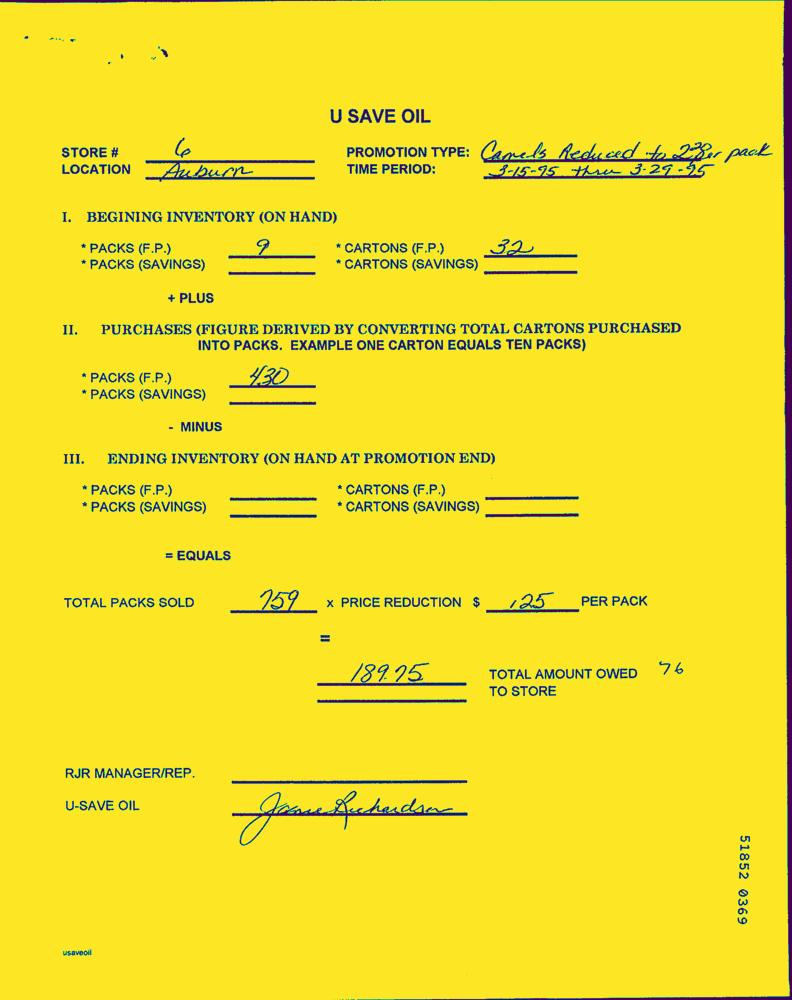 U SAVE OIL
STORE # 6 PROMOTION TYPE: Camels Reduced to per pack
LOCATION Auburn TIME PERIOD: 3-15-95 thru 3-29-95
I. BEGINING INVENTORY (ON HAND)
* PACKS (F.P.) 9 * CARTONS (F.P.) 32
* PACKS (SAVINGS) * CARTONS (SAVINGS)
+ PLUS
II. PURCHASES (FIGURE DERIVED BY CONVERTING TOTAL CARTONS PURCHASED
INTO PACKS. EXAMPLE ONE CARTON EQUALS TEN PACKS)
* PACKS (F.P.) 430
* PACKS (SAVINGS)
- MINUS
III. ENDING INVENTORY (ON HAND AT PROMOTION END)
* PACKS (F.P.) * CARTONS (F.P.)
* PACKS (SAVINGS) * CARTONS (SAVINGS)
= EQUALS
TOTAL PACKS SOLD 759 x PRICE REDUCTION $ .25 PER PACK
=
189.75 TOTAL AMOUNT OWED 76
TO STORE
RJR MANAGER/REP.
U-SAVE OIL Richardson
51852 0369
usaveoil